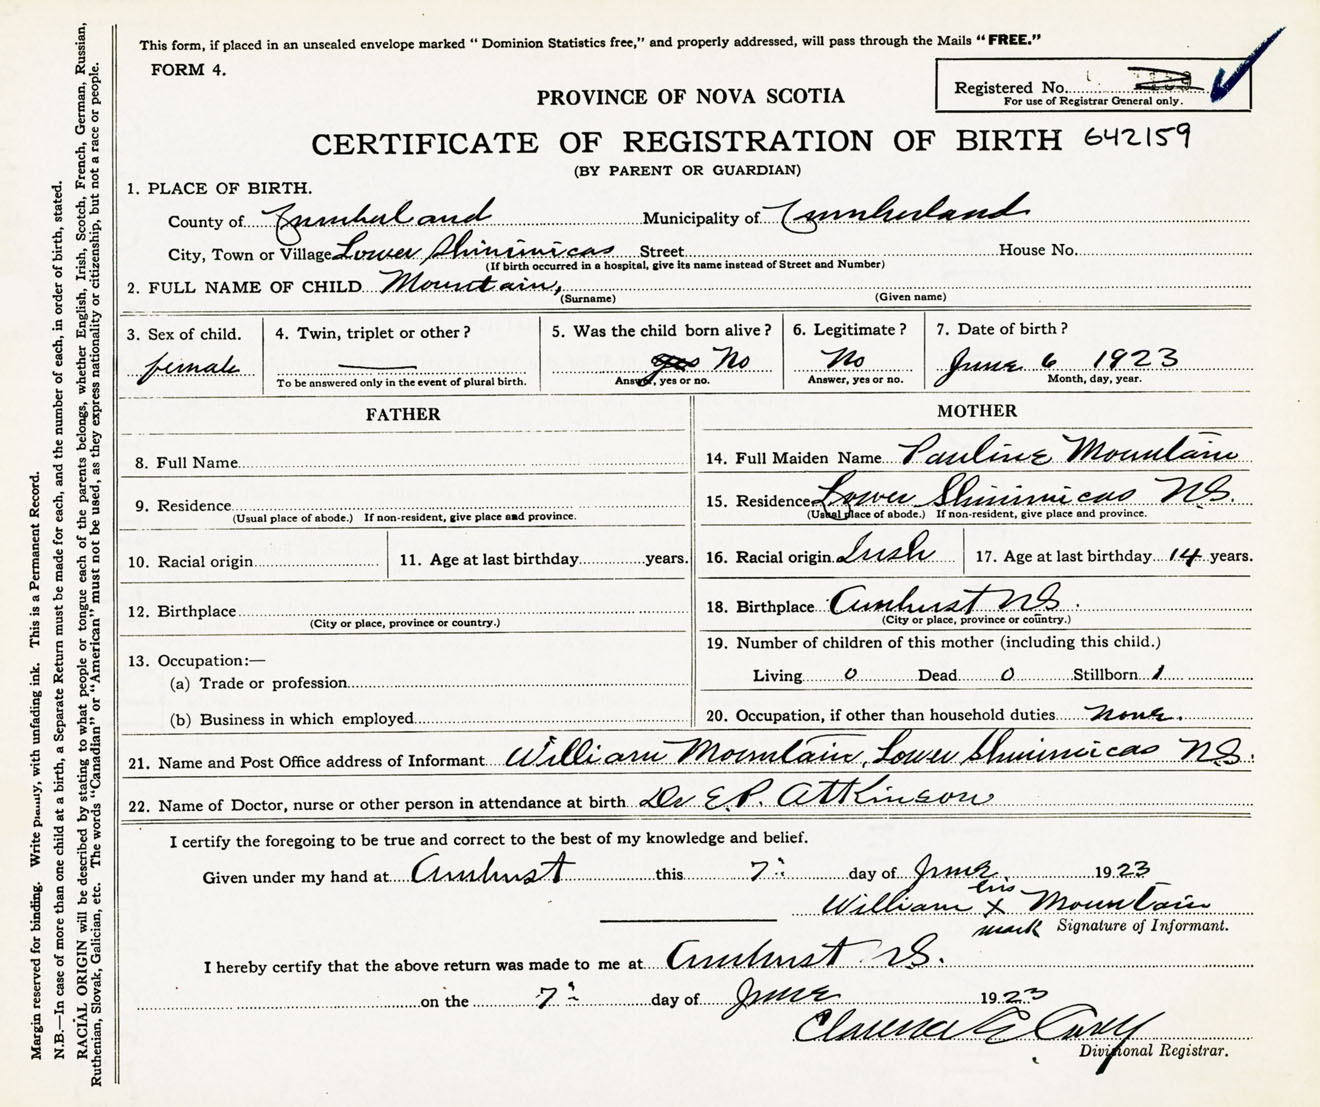 This form, if placed in an unsealed envelope marked " Dominion Statistics free," and properly addressed, will pass through the Mails "FREE."
FORM 4.
Registered No.
For use of Registrar General only.
PROVINCE OF NOVA SCOTIA
CERTIFICATE OF REGISTRATION OF BIRTH 642159
(BY PARENT OR GUARDIAN)
1. PLACE OF BIRTH.
County of Cumberland Municipality of Cumberland
City, Town or Village Lower Shinimicas Street House No.
(If birth occurred in a hospital, give its name instead of Street and Number)
2. FULL NAME OF CHILD Mountain,
(Surname) (Given name)
3. Sex of child. 4. Twin, triplet or other? 5. Was the child born alive? 6. Legitimate? 7. Date of birth?
female — yes No No June 6 1923
To be answered only in the event of plural birth. Answer, yes or no. Answer, yes or no. Month, day, year.
FATHER
8. Full Name
9. Residence
(Usual place of abode.) If non-resident, give place and province.
10. Racial origin 11. Age at last birthday years.
12. Birthplace
(City or place, province or country.)
13. Occupation:—
(a) Trade or profession
(b) Business in which employed
MOTHER
14. Full Maiden Name Pauline Mountain
15. Residence Lower Shinimicas NS.
(Usual place of abode.) If non-resident, give place and province.
16. Racial origin Irish 17. Age at last birthday 14 years.
18. Birthplace Amherst NS.
(City or place, province or country.)
19. Number of children of this mother (including this child.)
Living 0 Dead 0 Stillborn 1
20. Occupation, if other than household duties none.
21. Name and Post Office address of Informant William Mountain, Lower Shinimicas NS.
22. Name of Doctor, nurse or other person in attendance at birth Dr E.P. Atkinson
I certify the foregoing to be true and correct to the best of my knowledge and belief.
Given under my hand at Amherst this 7" day of June 1923
his
William x Mountain
mark Signature of Informant.
I hereby certify that the above return was made to me at Amherst NS.
on the 7" day of June 1923
Clarence E Casey
Divisional Registrar.
Margin reserved for binding. Write plainly, with unfading ink. This is a Permanent Record.
N.B.—In case of more than one child at a birth, a Separate Return must be made for each, and the number of each, in order of birth, stated.
RACIAL ORIGIN will be described by stating to what people or tongue each of the parents belongs, whether English, Irish, Scotch, French, German, Russian,
Ruthenian, Slovak, Galician, etc. The words "Canadian" or "American" must not be used, as they express nationality or citizenship, but not a race or people.